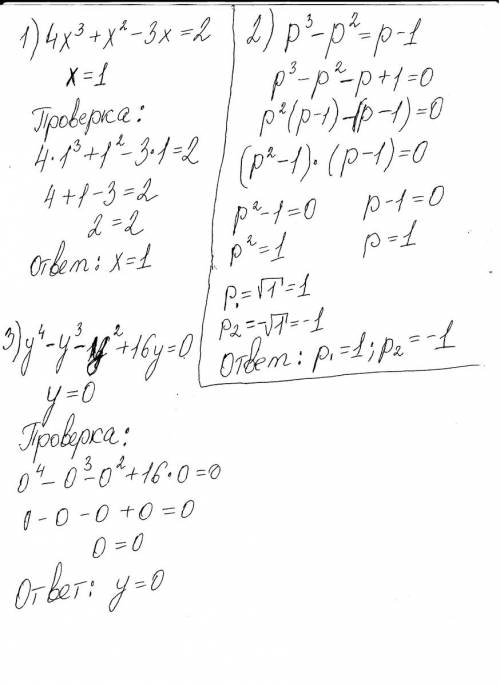 1) 4x³+x²-3x=2
x=1
Проверка:
4·1³+1²-3·1=2
4+1-3=2
2=2
Ответ: x=1
2) p³-p²=p-1
p³-p²-p+1=0
p²(p-1)-(p-1)=0
(p²-1)·(p-1)=0
p²-1=0 p-1=0
p²=1 p=1
p₁=√1=1
p₂=-√1=-1
Ответ: p₁=1; p₂=-1
3) y⁴-y³-y²+16y=0
y=0
Проверка:
0⁴-0³-0²+16·0=0
0-0-0+0=0
0=0
Ответ: y=0